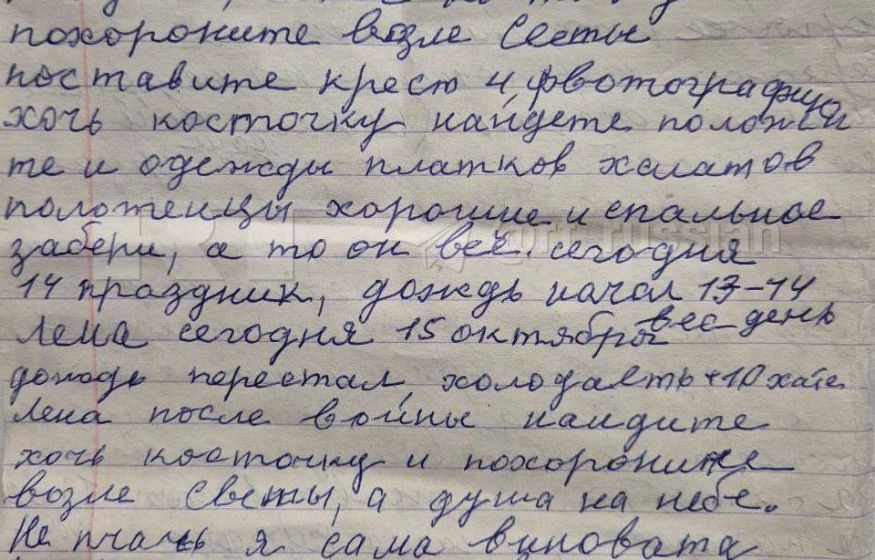 похороните возле Светы
поставите крест и фвотографию
хочь косточку найдете положи
те и одежды платков халатов
полотенцы хорошие и спальное
забери, а то он всё сегодня
14 праздник, дождь начал 13-14
Лена сегодня 15 октября вес день
дождь перестал, холодаеть +10
Лена после войны найдите
хочь косточку и похороните
возле Светы, а душа на небе.
Не плачь я сама виновата